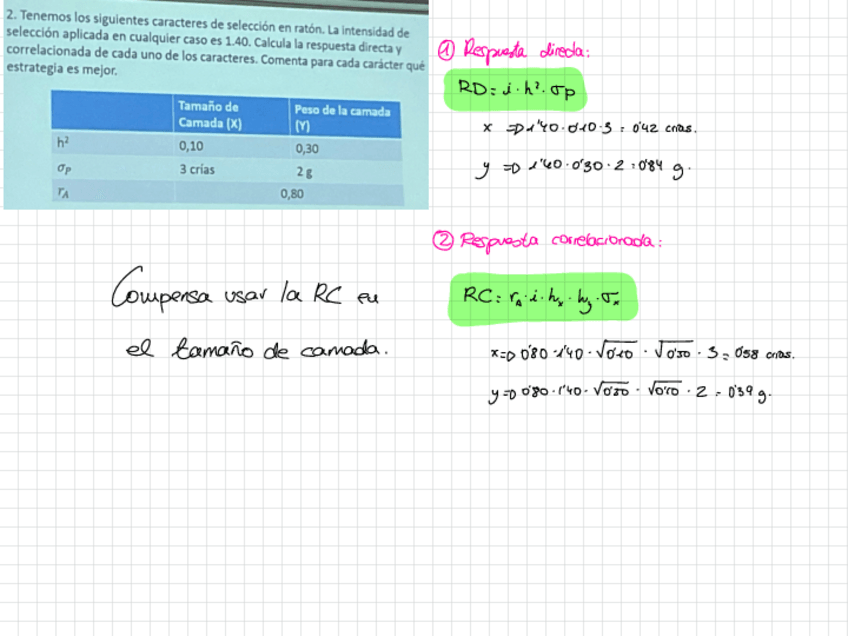 2. Tenemos los siguientes caracteres de selección en ratón. La intensidad de
selección aplicada en cualquier caso es 1.40. Calcula la respuesta directa y
correlacionada de cada uno de los caracteres. Comenta para cada carácter qué
estrategia es mejor.
Tamaño de Camada (X) Peso de la camada (Y)
h² 0,10 0,30
σP 3 crías 2 g
rA 0,80
① Respuesta directa:
RD = i · h² · σp
x => 1'40 · 0'10 · 3 = 0'42 crías.
y => 1'40 · 0'30 · 2 = 0'84 g.
② Respuesta correlacionada:
RC = rA · i · hx · hy · σx
x => 0'80 · 1'40 · √0'10 · √0'30 · 3 = 0'58 crías.
y => 0'80 · 1'40 · √0'30 · √0'10 · 2 = 0'39 g.
Compensa usar la RC en
el tamaño de camada.